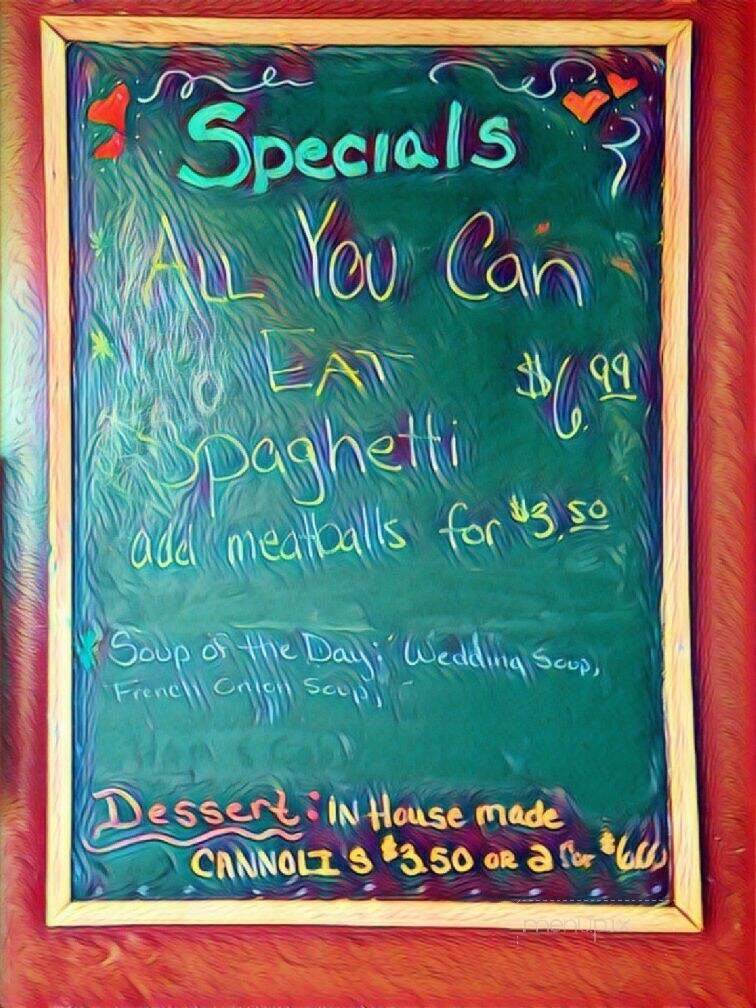 Specials
All You Can
Eat $6.99
Spaghetti
add meatballs for $3.50
Soup of the Day: Wedding Soup,
French Onion Soup,
Dessert: IN House made
CANNOLI S $3.50 OR 2 for $6.00
menupix